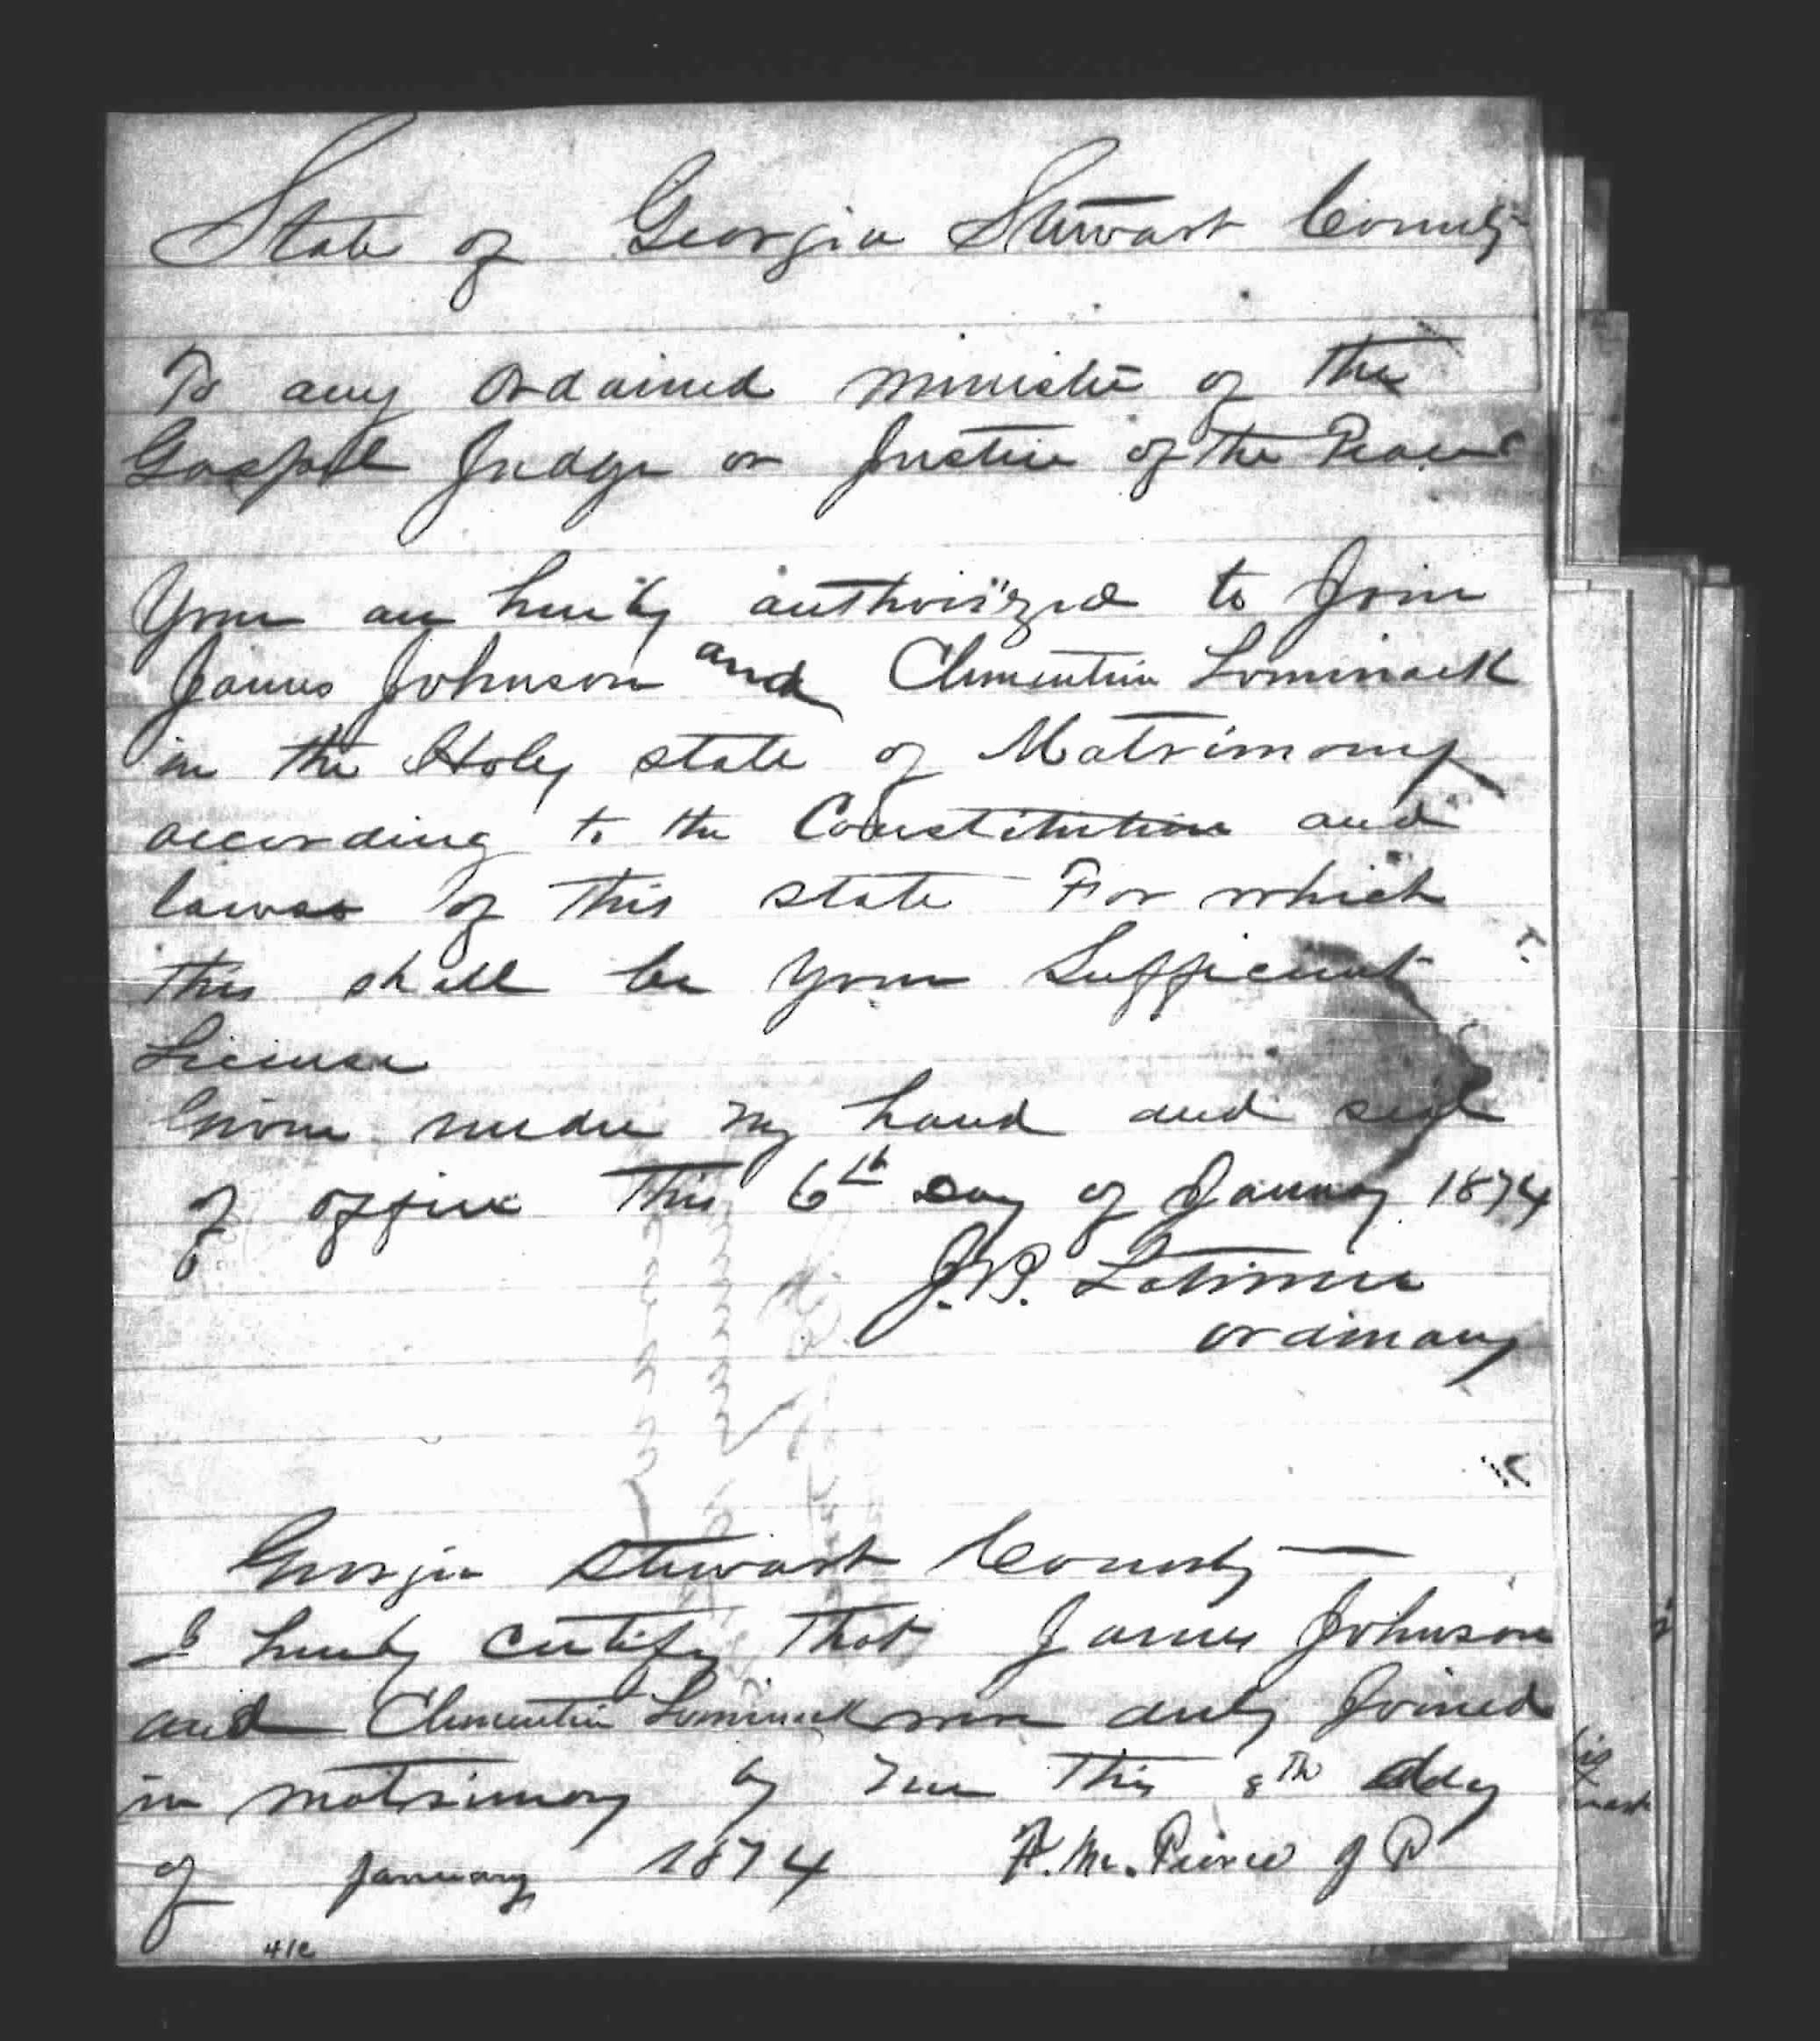 State of Georgia Stewart County
To any ordained minister of the
Gospel Judge or Justice of the Peace
Your are hereby authorized to Join
James Johnson and Clementine Lominack
in the Holy state of Matrimony
according to the Constitution and
laws of this state For which
this shall be your Sufficient
License
Given under my hand and seal
of office this 6th Day of January 1874
J.B. Latimer
ordinary
Georgia Stewart County
I hereby certify that James Johnson
and Clementine Lominack were duly Joined
in matrimony by me this 8th day
of January 1874 F. M. Pierce J P